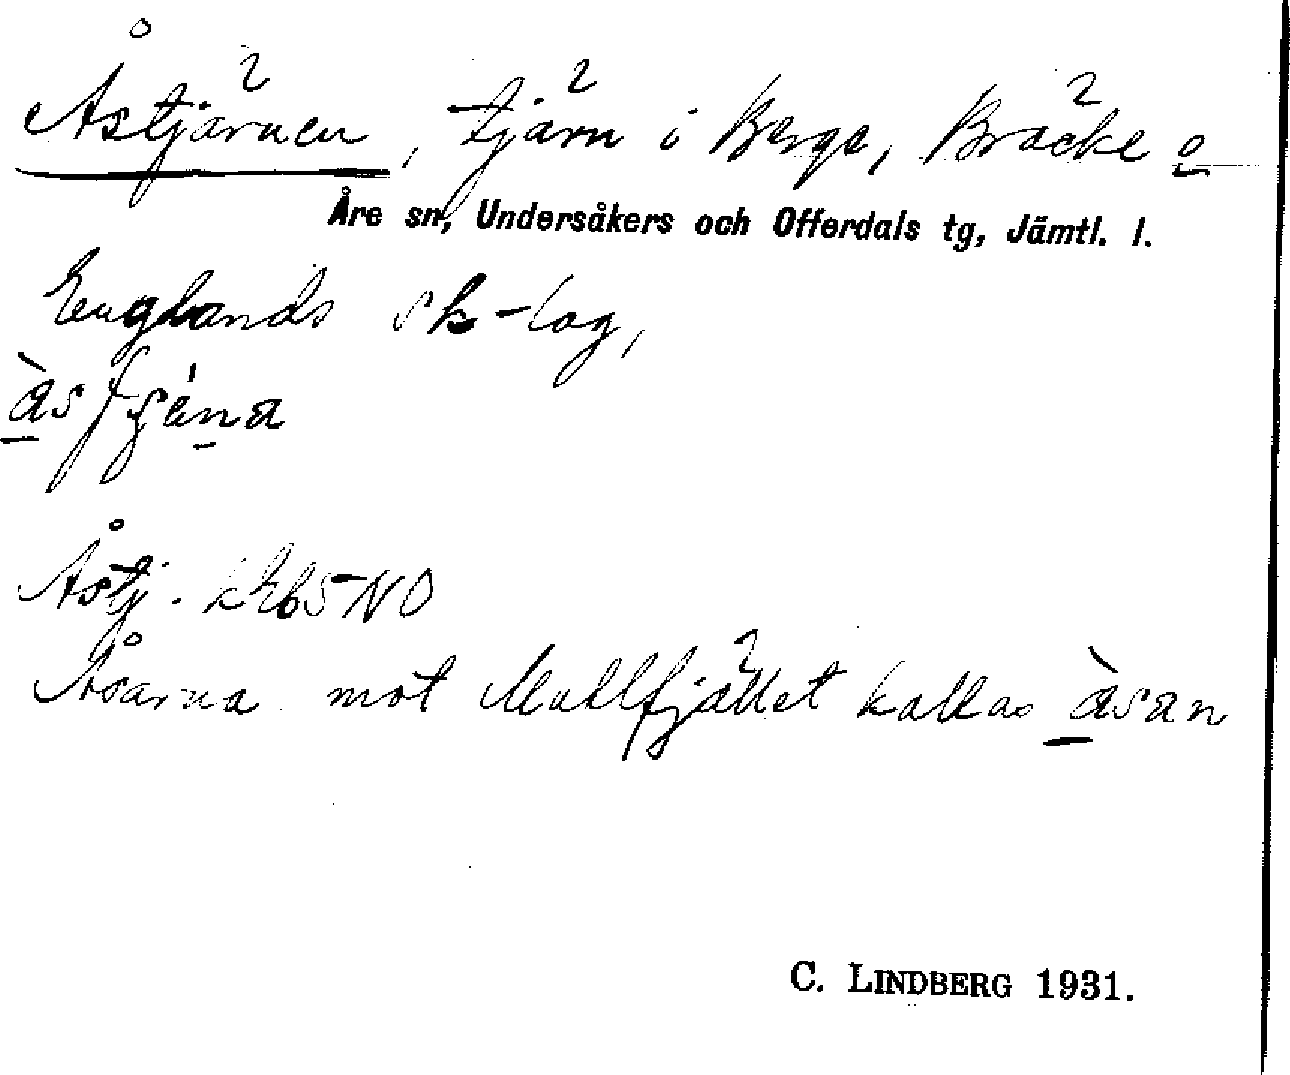 Åstjärnen, tjärn i Berge, Bräcke o
Åre sn, Undersåkers och Offerdals tg, Jämtl. l.
Englands sk-lag,
Åstj. NO
Åsarna mot Mullfjället kallas àsan
C. LINDBERG 1931.